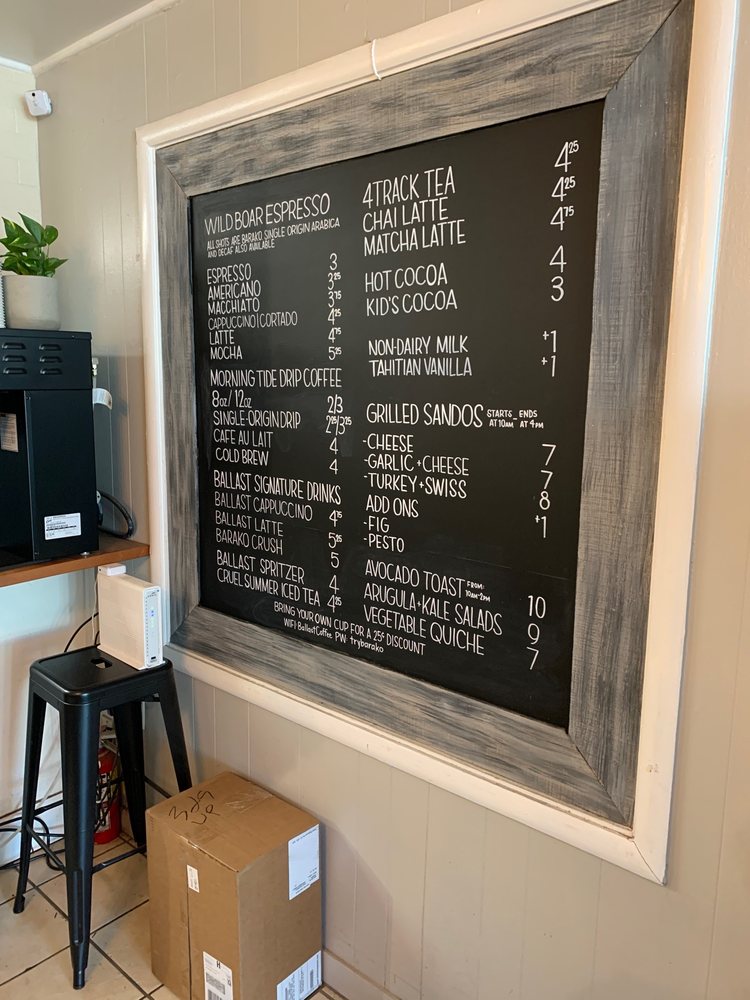 WILD BOAR ESPRESSO
ALL SHOTS ARE BARAKO SINGLE ORIGIN ARABICA
AND DECAF ALSO AVAILABLE
ESPRESSO 3
AMERICANO 3.25
MACCHIATO 3.75
CAPPUCCINO|CORTADO 4.25
LATTE 4.75
MOCHA 5.25
MORNING TIDE DRIP COFFEE
8oz/12oz 2/3
SINGLE-ORIGIN DRIP 2.25/3.25
CAFE AU LAIT 4
COLD BREW 4
BALLAST SIGNATURE DRINKS
BALLAST CAPPUCCINO 4.75
BALLAST LATTE 5.25
BARAKO CRUSH 5
BALLAST SPRITZER 4
CRUEL SUMMER ICED TEA 4.25
4TRACK TEA 4.25
CHAI LATTE 4.25
MATCHA LATTE 4.75
HOT COCOA 4
KID'S COCOA 3
NON-DAIRY MILK +1
TAHITIAN VANILLA +1
GRILLED SANDOS STARTS ENDS
AT 10AM AT 4PM
-CHEESE 7
-GARLIC+CHEESE 7
-TURKEY+SWISS 8
ADD ONS +1
-FIG
-PESTO
AVOCADO TOAST FROM: 10AM-2PM 10
ARUGULA+KALE SALADS 9
VEGETABLE QUICHE 7
BRING YOUR OWN CUP FOR A 25¢ DISCOUNT
WIFI: BallastCoffee PW: trybarako